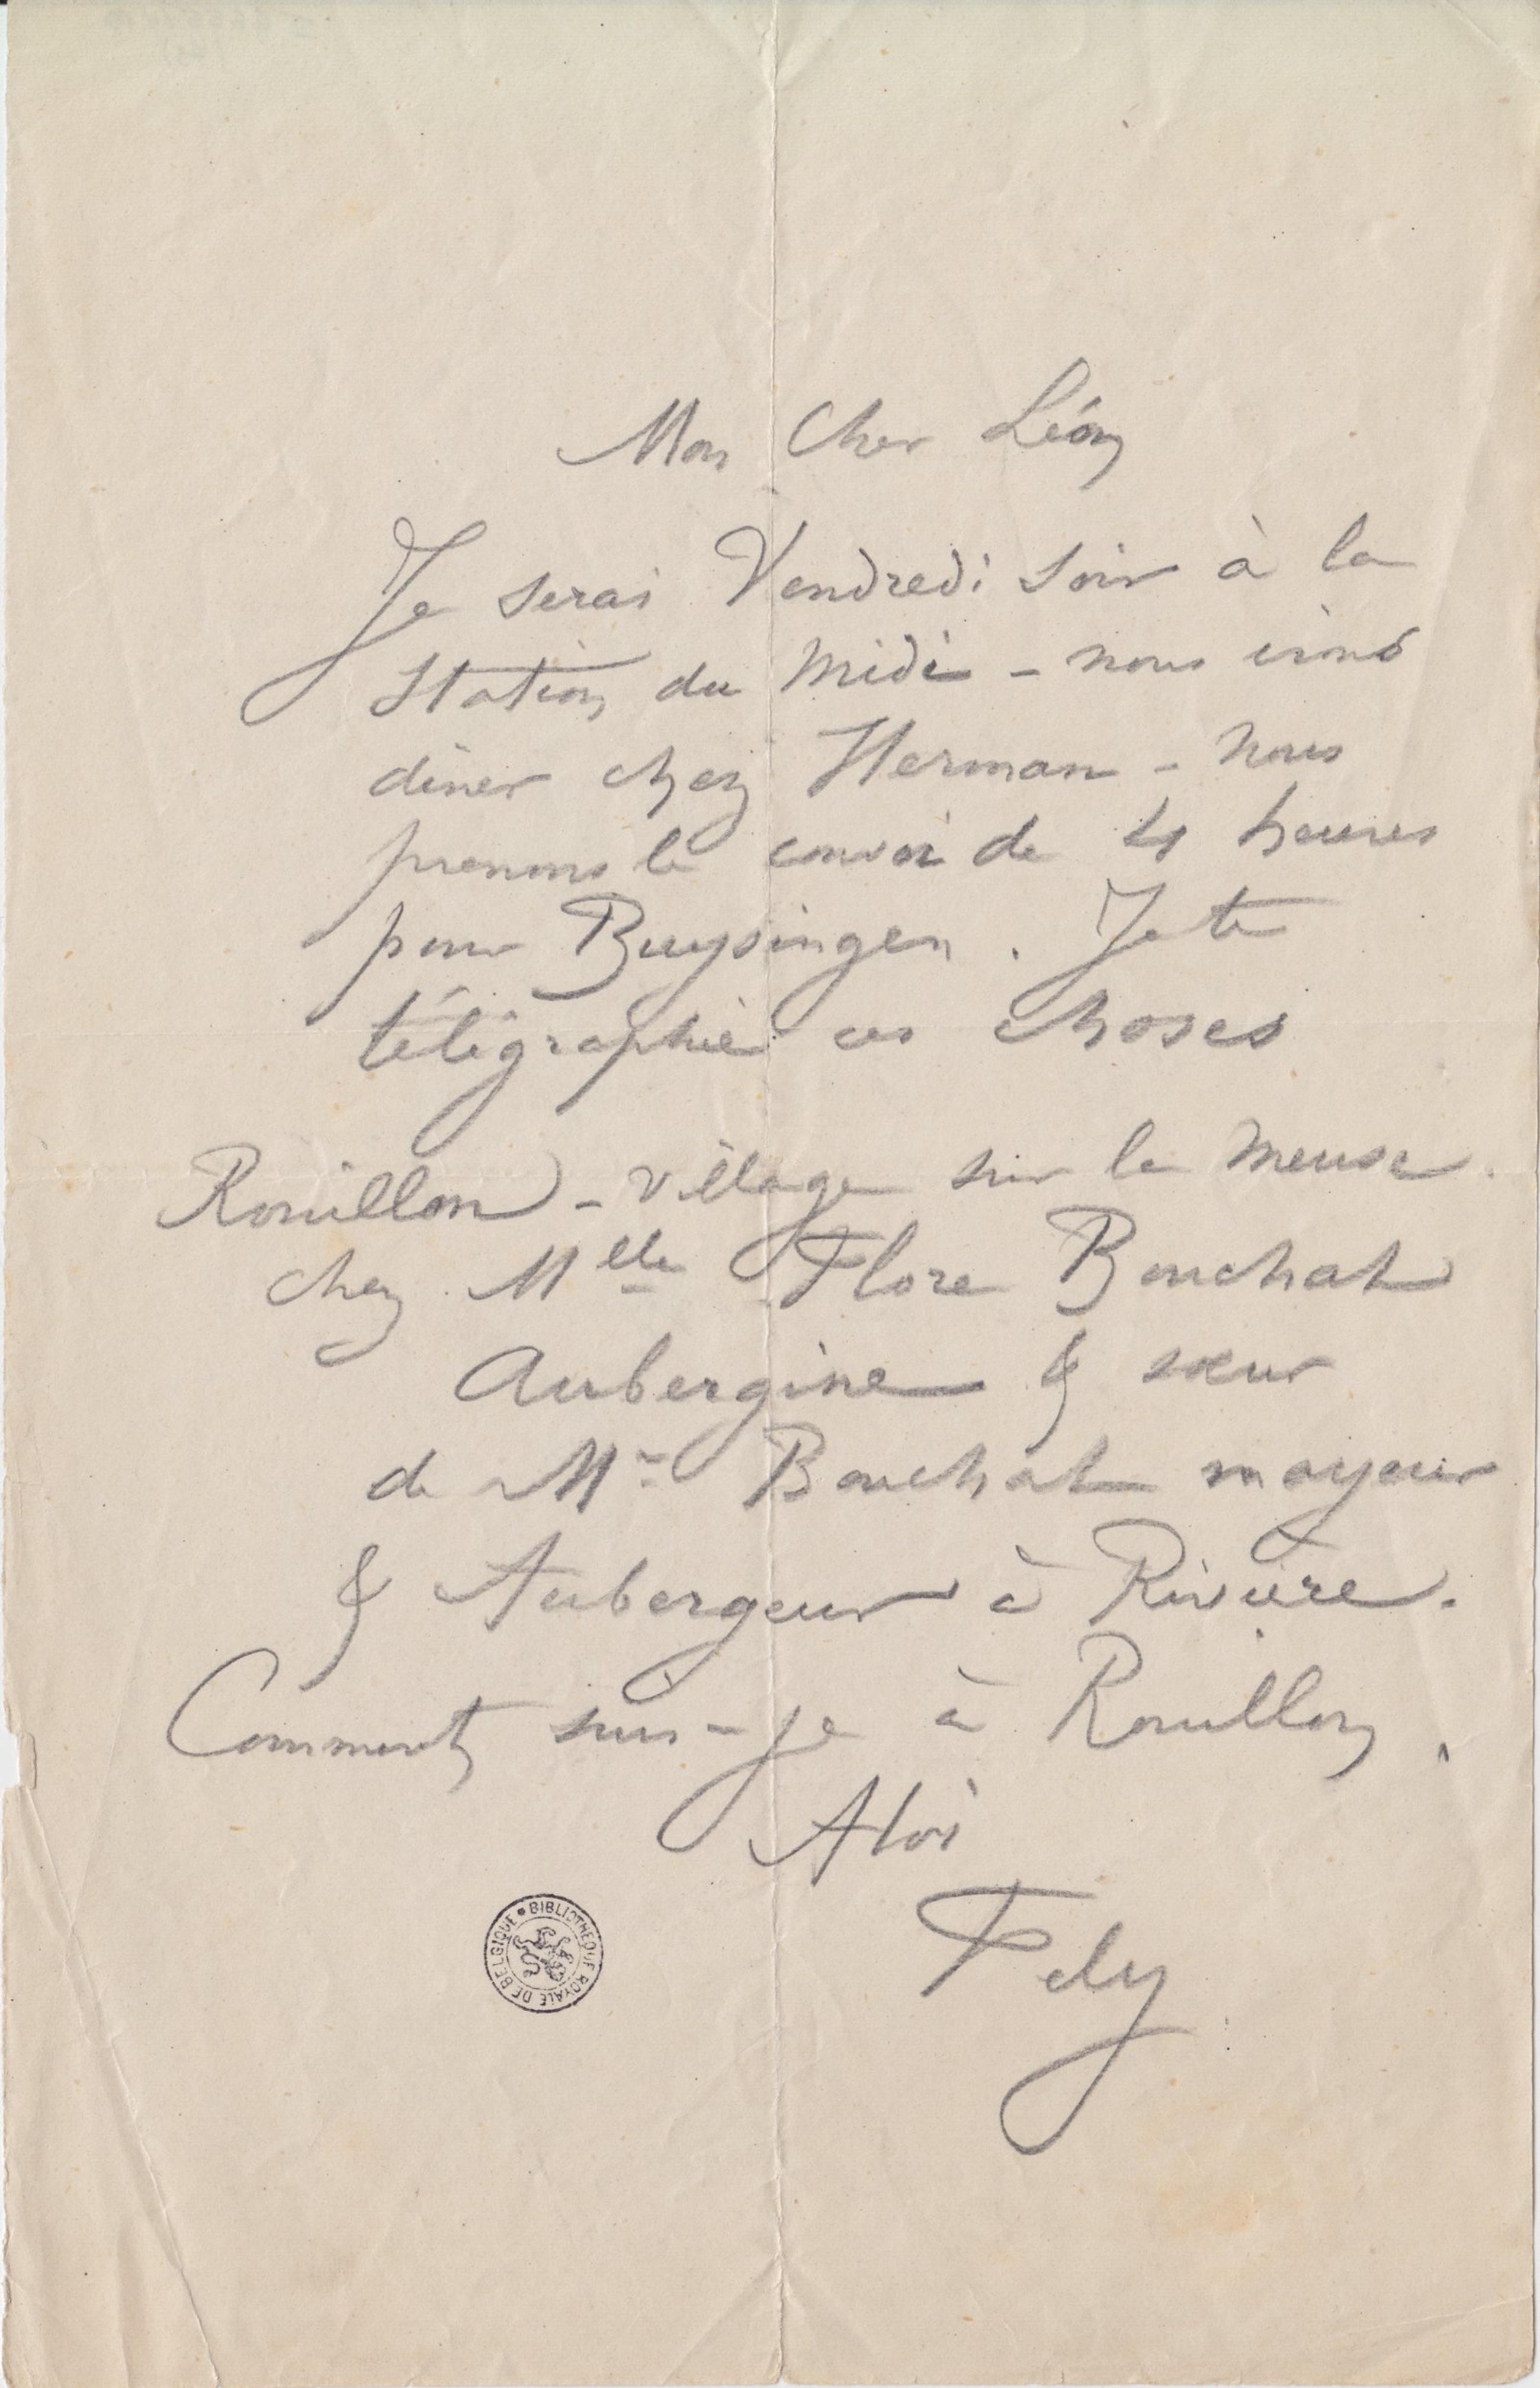 Mon Cher Léon
Je serai Vendredi soir à la
Station du Midi - nous irons
diner chez Herman - Nous
prenons le convoi de 4 heures
pour Buysingen. Je te
télégraphie ces choses
Rouillon - village sur la Meuse.
chez Mlle Flore Bouchat
Aubergine & sœur
de Mr Bouchat mayeur
& Aubergeur à Rivière.
Comment suis-je à Rouillon.
À toi
Fély
BIBLIOTHEQUE ROYALE DE BELGIQUE